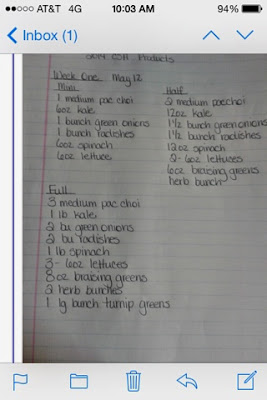 ●●○○○ AT&T 4G 10:03 AM 94%
Inbox (1)
CSA Products
Week One May 12
Mini
1 medium pac choi
6oz kale
1 bunch green onions
1 bunch radishes
6oz spinach
6oz lettuce
Half
2 medium pac choi
12oz kale
1 1/2 bunch green onions
1 1/2 bunch radishes
12oz spinach
2-6oz lettuces
6oz braising greens
herb bunch
Full
3 medium pac choi
1 lb kale
2 bu green onions
2 bu radishes
1 lb spinach
3-6oz lettuces
8oz braising greens
2 herb bunches
1 lg bunch turnip greens